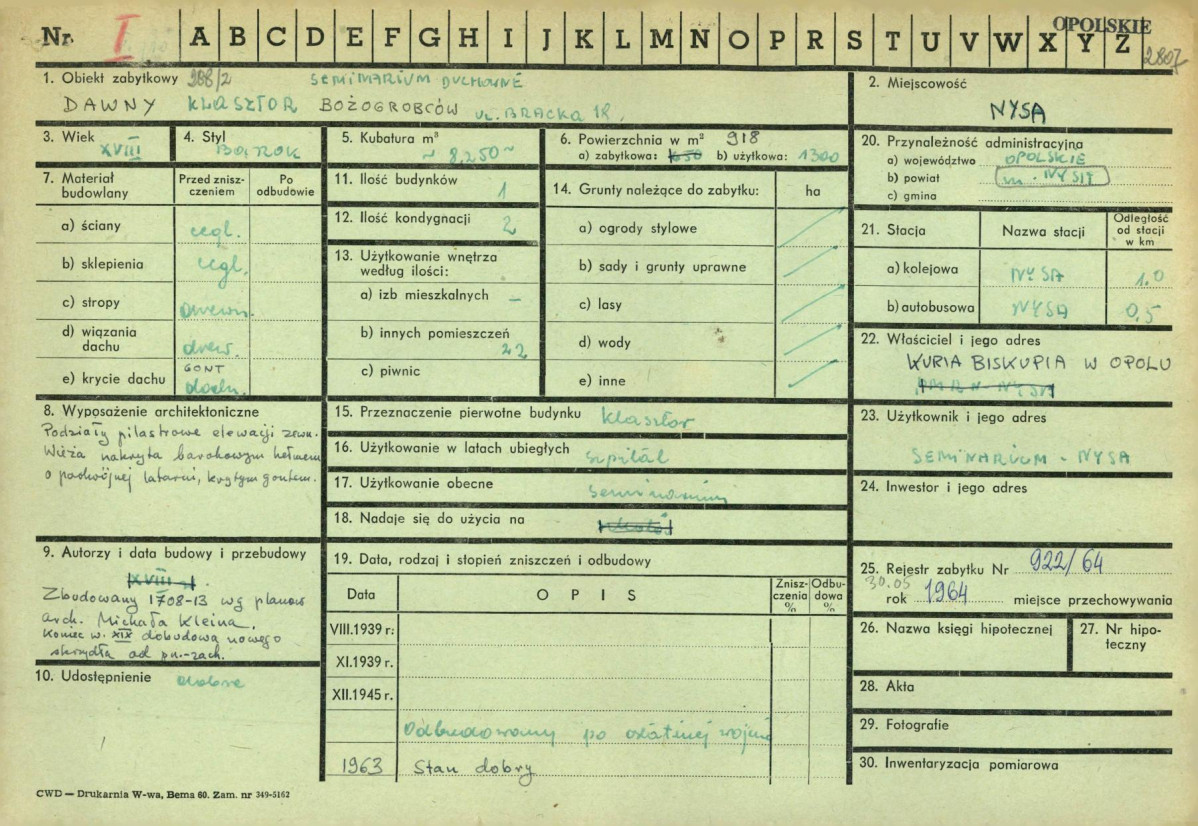 OPOLSKIE
Nr. I A B C D E F G H I J K L M N O P R S T U V W X Y Z
2807
1. Obiekt zabytkowy 988/2 SEMINARIUM DUCHOWNE
DAWNY KLASZTOR BOŻOGROBCÓW ul. BRACKA 18,
2. Miejscowość
NYSA
3. Wiek
XVIII
4. Styl
BAROK
5. Kubatura m³
~ 8,250 ~
6. Powierzchnia w m² 918
a) zabytkowa: 650 b) użytkowa: 1300
20. Przynależność administracyjna
a) województwo OPOLSKIE
b) powiat m. NYSA
c) gmina
7. Materiał budowlany
Przed zniszczeniem
Po odbudowie
a) ściany cegl.
b) sklepienia cegl.
c) stropy drewn.
d) wiązania dachu drew.
e) krycie dachu GONT dach.
11. Ilość budynków 1
12. Ilość kondygnacji 2
13. Użytkowanie wnętrza według ilości:
a) izb mieszkalnych –
b) innych pomieszczeń 22
c) piwnic
14. Grunty należące do zabytku: ha
a) ogrody stylowe
b) sady i grunty uprawne
c) lasy
d) wody
e) inne
21. Stacja
Nazwa stacji
Odległość od stacji w km
a) kolejowa NYSA 1.0
b) autobusowa NYSA 0,5
22. Właściciel i jego adres
KURIA BISKUPIA W OPOLU
8. Wyposażenie architektoniczne
Podziały pilastrowe elewacji zewn.
Wieża nakryta barokowym hełmem
o podwójnej latarni, krytym gontem.
15. Przeznaczenie pierwotne budynku klasztor
16. Użytkowanie w latach ubiegłych szpital
17. Użytkowanie obecne seminarium
18. Nadaje się do użycia na
23. Użytkownik i jego adres
SEMINARIUM - NYSA
24. Inwestor i jego adres
9. Autorzy i data budowy i przebudowy
XVIII
Zbudowany 1708-13 wg planów
arch. Michała Kleina.
Koniec w. XIX dobudowa nowego
skrzydła od pn.-zach.
10. Udostępnienie dobre
19. Data, rodzaj i stopień zniszczeń i odbudowy
Data
OPIS
Zniszczenia %
Odbudowa %
VIII.1939 r.
XI.1939 r.
XII.1945 r.
Odbudowany po ostatniej wojnie
1963 Stan dobry
25. Rejestr zabytku Nr 922/64
30.05
rok 1964 miejsce przechowywania
26. Nazwa księgi hipotecznej
27. Nr hipoteczny
28. Akta
29. Fotografie
30. Inwentaryzacja pomiarowa
CWD — Drukarnia W-wa, Bema 60. Zam. nr 349-5162